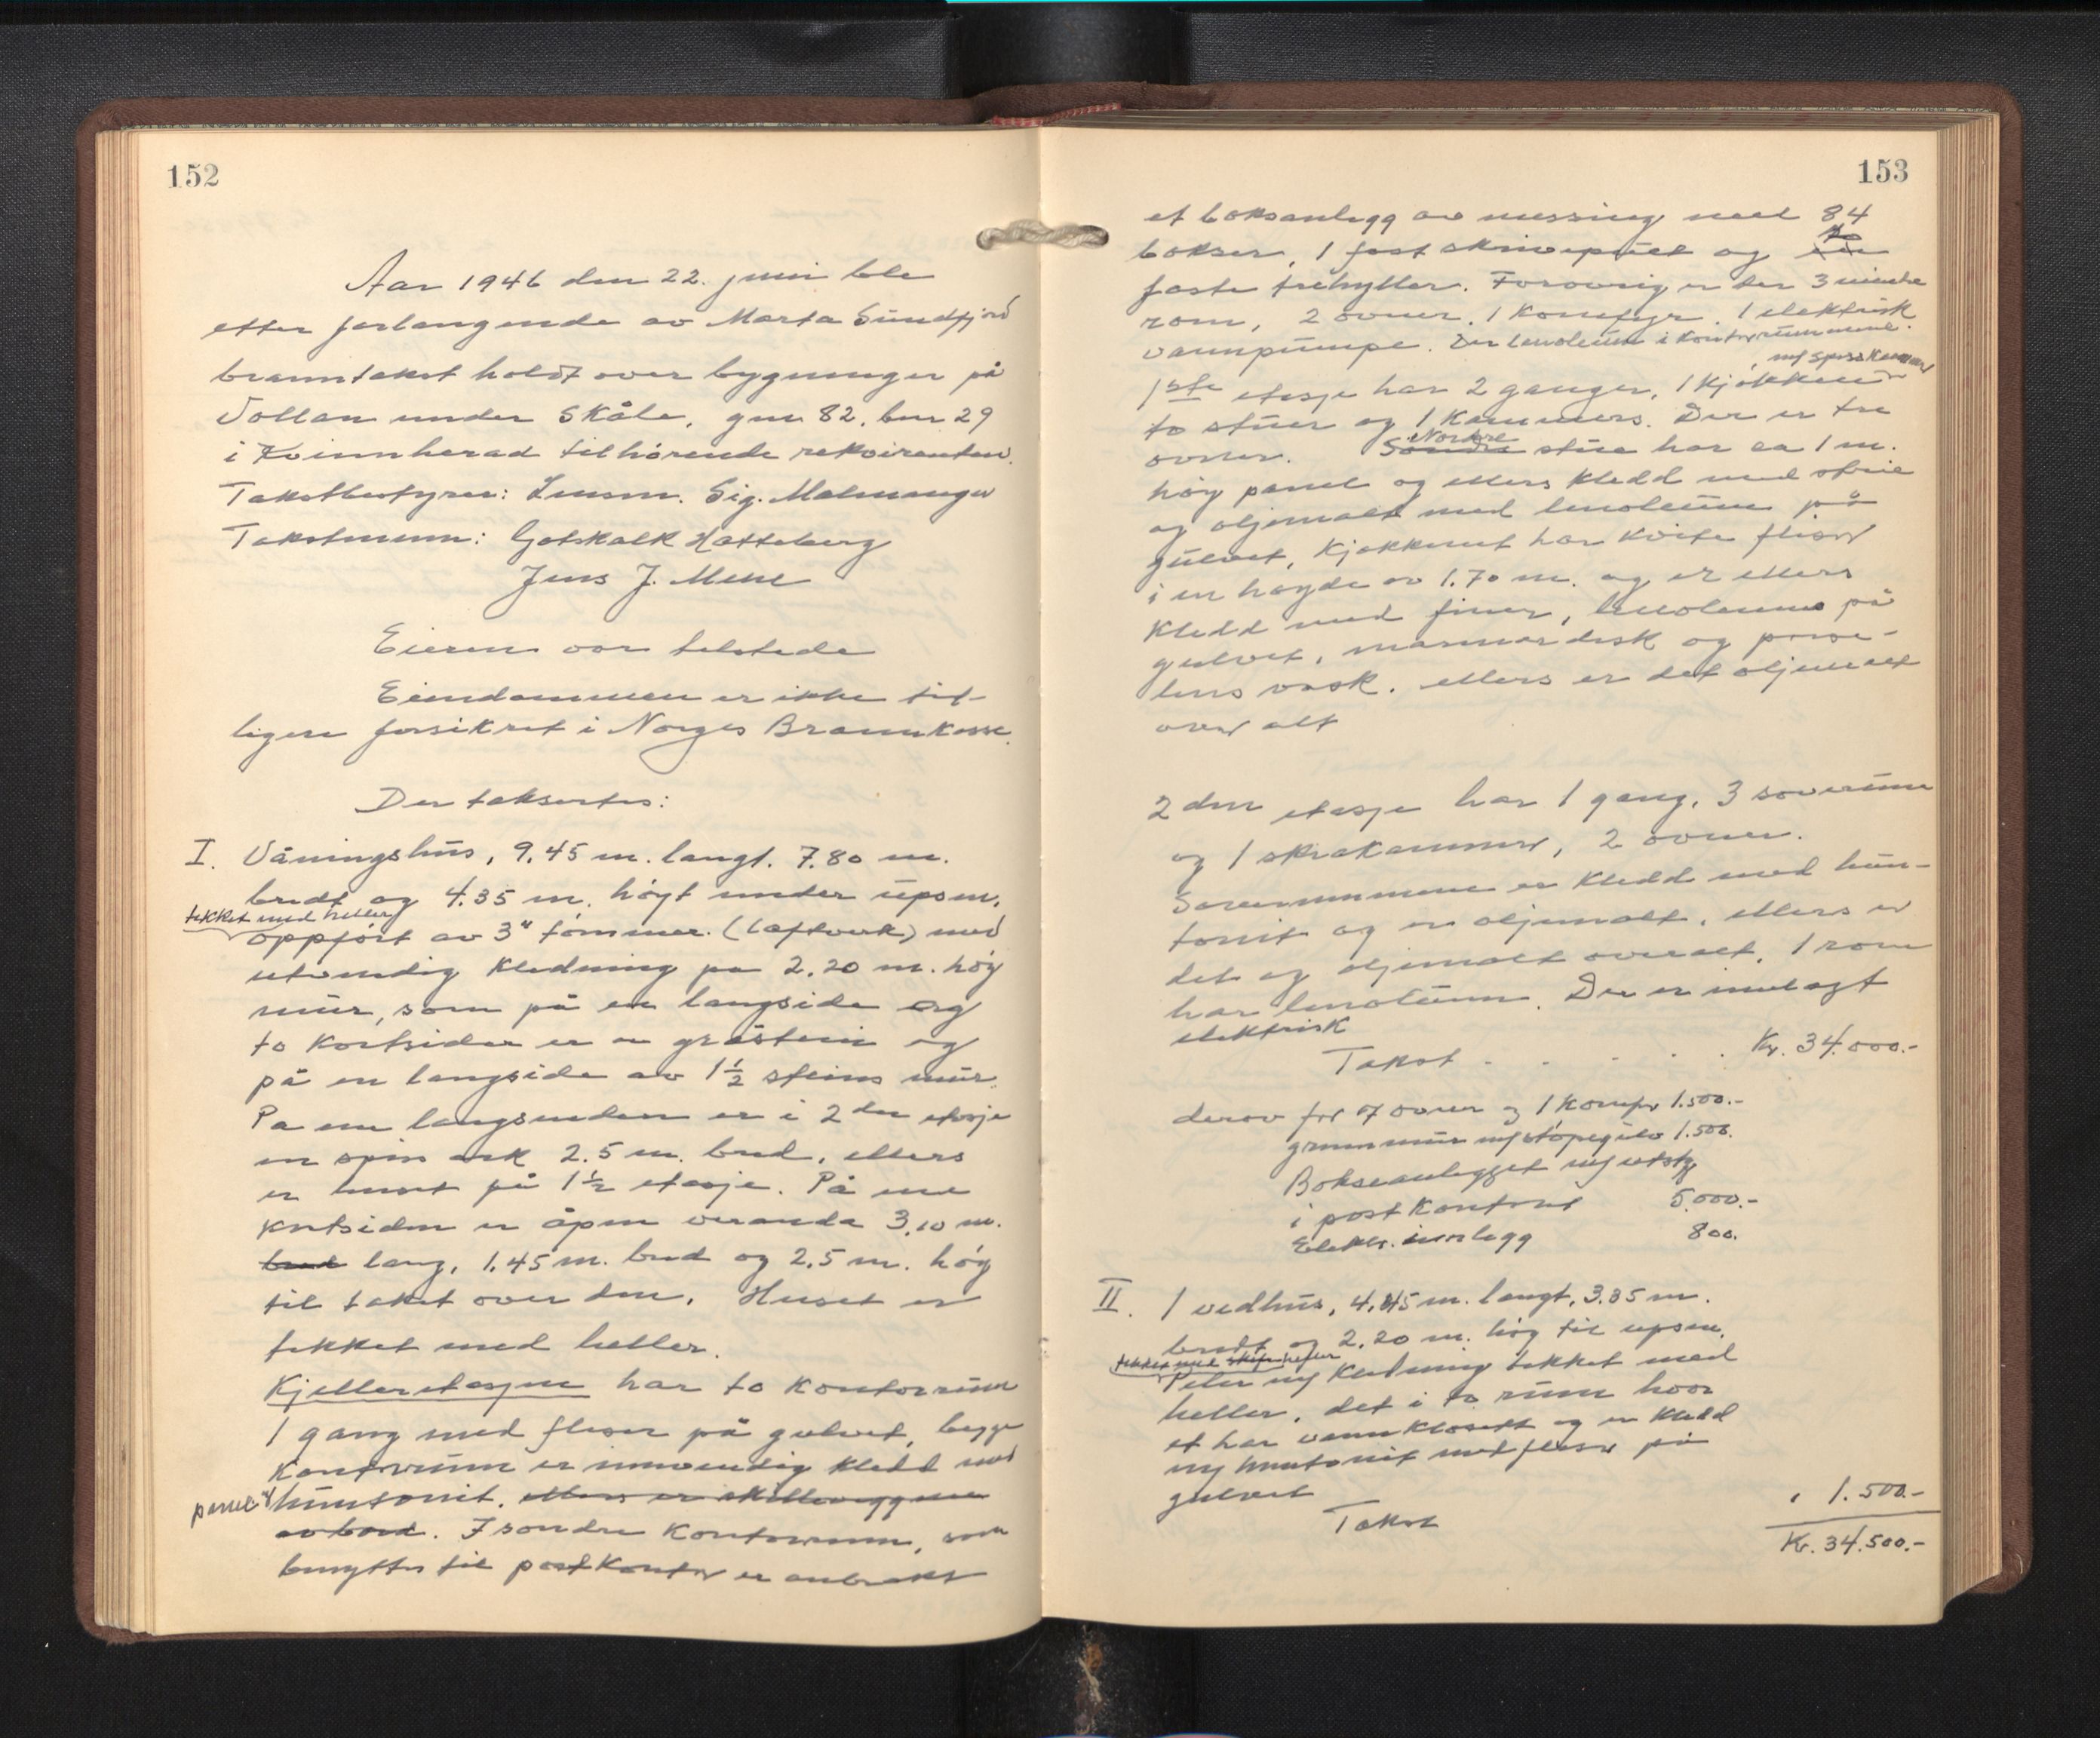 152
Aar 1946 den 22. juni ble
etter forlangende av Marta Sundfjord
branntakst holdt over bygninger på
Vollan under Skåle, gnr 82. bnr 29
i Kvinnherad tilhörende rekvirenten.
Takstbestyrer: Lensm. Sig. Malmanger
Takstmenn: Gotskalk Hatteberg
Jens J. Mehl
Eieren var tilstede
Eiendommen er ikke tid-
ligere forsikret i Norges Brannkasse.
Der taksertes:
I. Våningshus, 9.45 m. langt. 7.80 m.
bredt og 4.35 m. höyt under upsen.
tekket med heller
oppfört av 3" tömmer. (laftverk) med
utvendig kledning på 2.20 m. höy
mur, som på en langside og
to kortsider er av gråstein og
på en langside av 1½ steins mur.
På den langsiden er i 2den etasje
en ark 2.5 m. bred, ellers
er huset på 1½ etasje. På ene
kortsiden er åpen veranda 3.10 m.
bred lang, 1.45 m. bred og 2.5 m. höy
til taket over den. Huset er
tekket med heller.
Kjelleretasjen har to kontorrum
1 gang med fliser på gulvet, begge
Kontorrum er innvendig kledd med
panel og huntonit. ellers er skilleveggene
av bord. I söndre Kontorrum, som
benyttes til postkontor er anbrakt
153
et boksanlegg av messing med 84
bokser, 1 fast skrivepult og to
faste trehyller. Forövrig er der 3 mindre
rom, 2 ovner. 1 komfyr. 1 elektrisk
vannpumpe. Der linoleum i Kontorrummene.
m/ spiskammer
1ste etasje har 2 ganger, 1 kjökken
to stuer og 1 kammers. Der er tre
ovner. Söndre Nordre stue har ca 1 m.
höy panel og ellers kledd med strie
og oljemalt med linoleum på
gulvet, Kjökkenet har kvite fliser
i en höyde av 1.70 m. og er ellers
kledd med finer, linoleum på
gulvet, marmor disk og porse-
lens vask. ellers er det oljemalt
over alt
2den etasje har 1 gang, 3 soverum
og 1 skråkammer, 2 ovner.
Soverummene er kledd med hun-
tonit og er oljemalt. ellers er
det og oljemalt overalt. 1 rom
har linoleum. Der er innlagt
elektrisk
Takst - . . . . Kr. 34.000.-
derav for 7 ovner og 1 komfyr 1.500.-
grunnmur m/ stöpegulv 1.500.
Bokseanlegget m/ utstyr
i postkontoret 5.000.-
Elektr. innlegg 800.
II. 1 vedhus, 4.45 m. langt, 3.35 m.
bredt og 2.20 m. höy til upsen.
tekket med skifer heller
Peler m/ kledning tekket med
heller. delt i to rum hvor
et har vannklosett og er kledd
m/ huntonit med fliser på
gulvet
Takst " 1.500.-
Kr. 34.500.-